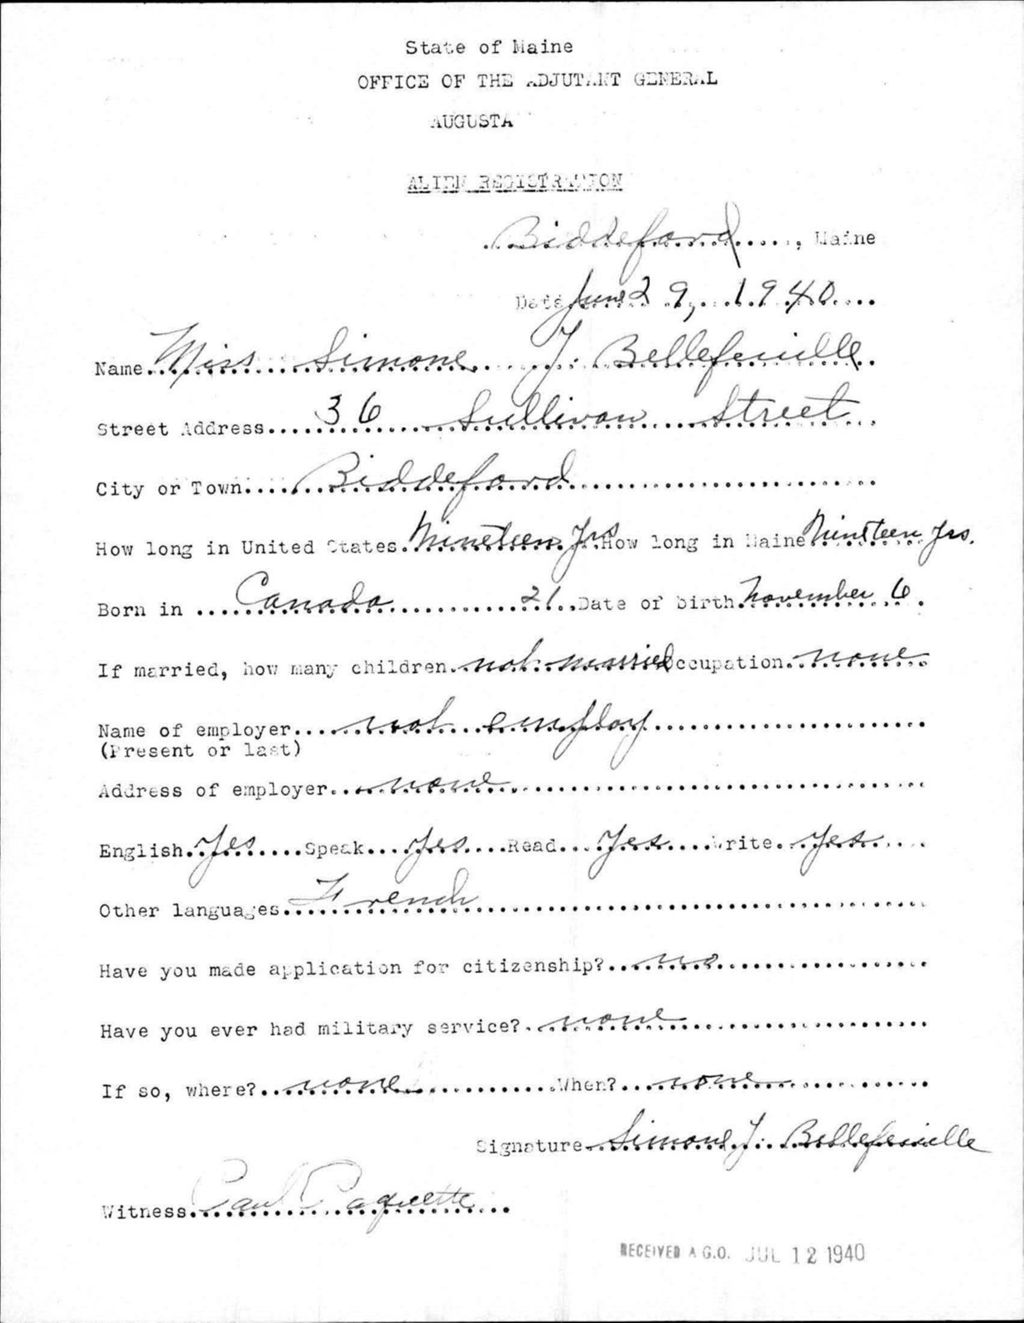 State of Maine
OFFICE OF THE ADJUTANT GENERAL
AUGUSTA
ALIEN REGISTRATION
Biddeford, Maine
Date June 29, 1940
Name Miss Simone J. Bellefeuille
Street Address 36 Sullivan Street
City or Town Biddeford
How long in United States Nineteen Yrs How long in Maine Nineteen Yrs.
Born in Canada 21 Date of birth November 6
If married, how many children not married Occupation none
Name of employer not employ
(Present or last)
Address of employer none
English Yes Speak Yes Read Yes Write Yes
Other languages French
Have you made application for citizenship? no
Have you ever had military service? none
If so, where? none When? none
Signature Simone J. Bellefeuille
Witness Paul Paquette
RECEIVED A.G.O. JUL 12 1940